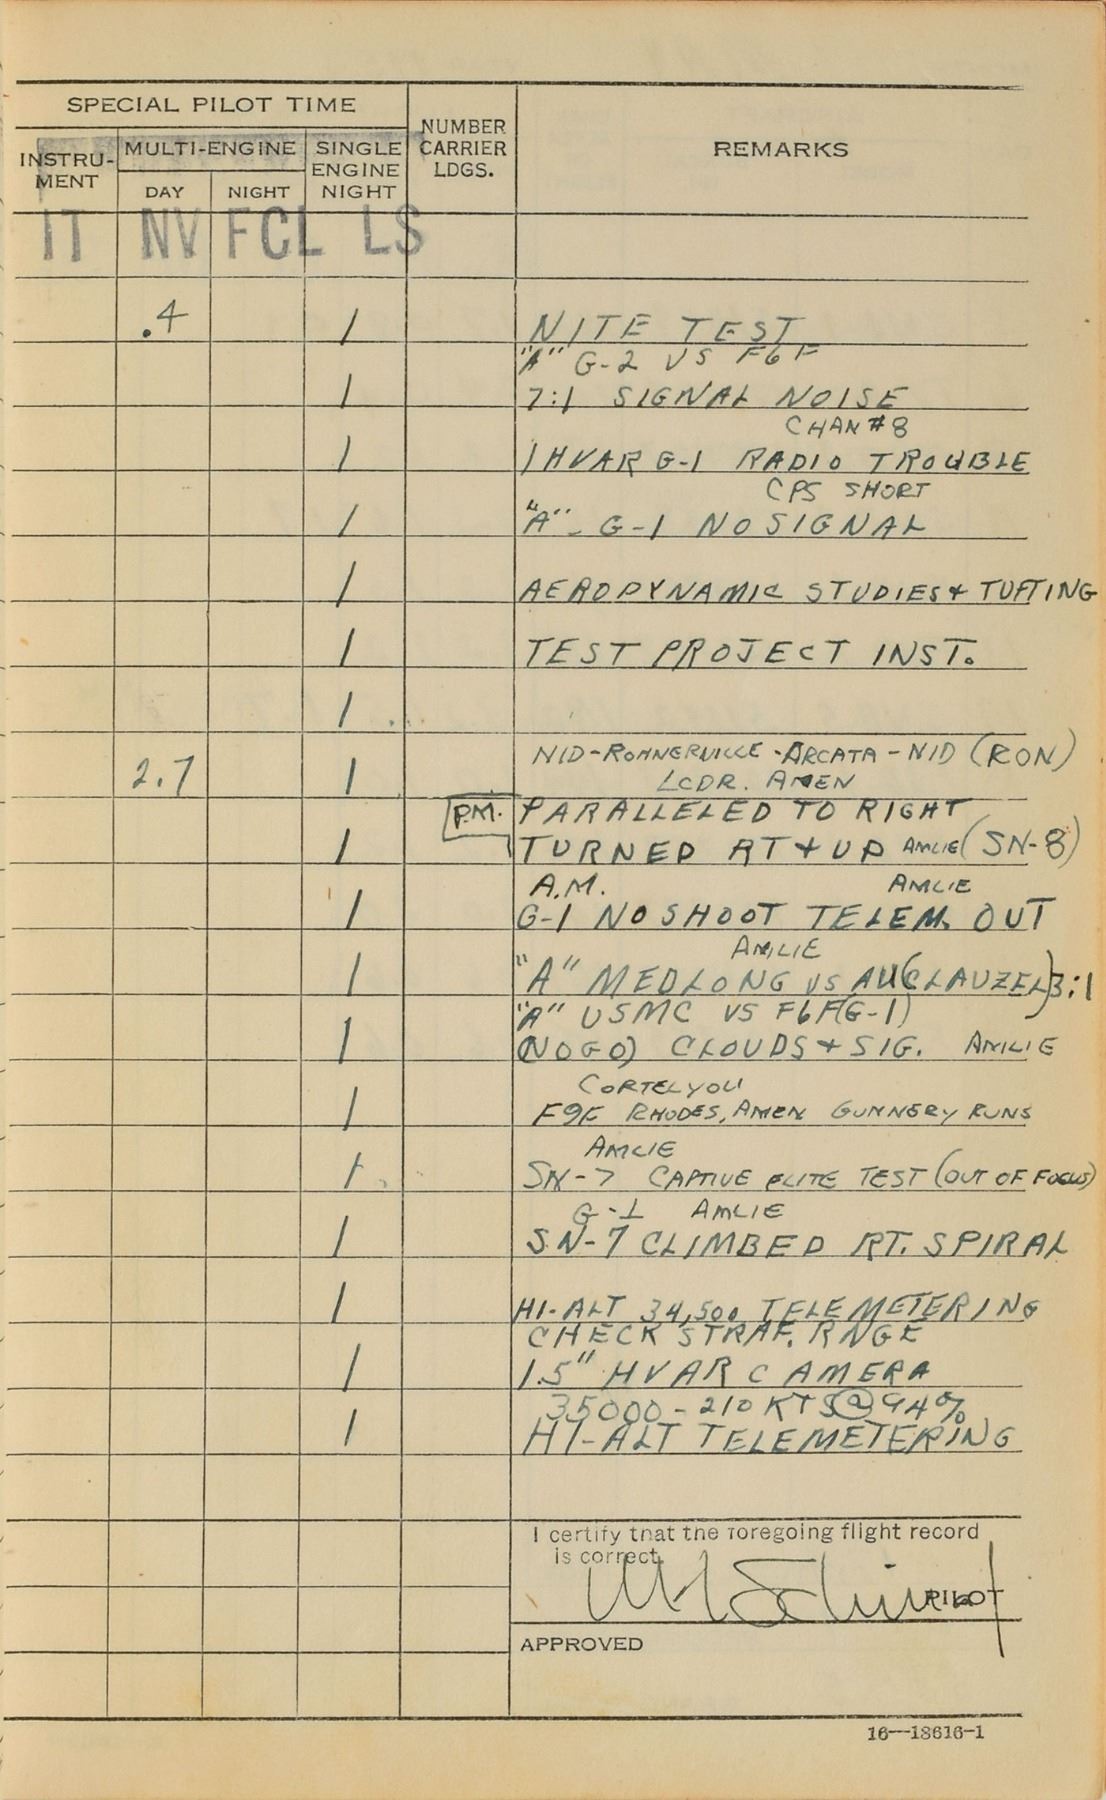 SPECIAL PILOT TIME
INSTRU-MENT
MULTI-ENGINE
DAY
NIGHT
SINGLE ENGINE NIGHT
NUMBER CARRIER LDGS.
REMARKS
IT NV FCL LS
.4 1 NITE TEST
"A" G-2 VS F6F
1 7:1 SIGNAL NOISE
CHAN #8
1 1 HVAR G-1 RADIO TROUBLE
CPS SHORT
1 "A" - G-1 NO SIGNAL
1 AERODYNAMIC STUDIES & TUFTING
1 TEST PROJECT INST.
1
NID-ROHNERVILLE-ARCATA-NID (RON)
2.7 1 LCDR. AMEN
P.M. PARALLELED TO RIGHT
1 TURNED RT & UP AMLIE (SN-8)
A.M. AMLIE
1 G-1 NO SHOOT TELEM. OUT
AMLIE
1 "A" MEDLONG VS AU (CLAUZEL) 3:1
"A" USMC VS F6F (G-1)
1 (NO GO) CLOUDS & SIG. AMLIE
CORTELYOU
1 F9F RHODES, AMEN GUNNERY RUNS
AMLIE
1 SN-7 CAPTIVE FLITE TEST (OUT OF FOCUS)
G-1 AMLIE
1 SN-7 CLIMBED RT. SPIRAL
1 HI-ALT 34,500 TELEMETERING
CHECK STRAF. RNGE
1 1.5" HVAR CAMERA
35000 - 210 KTS @ 94%
1 HI-ALT TELEMETERING
I certify that the foregoing flight record
is correct.
PILOT
APPROVED
16—18616-1